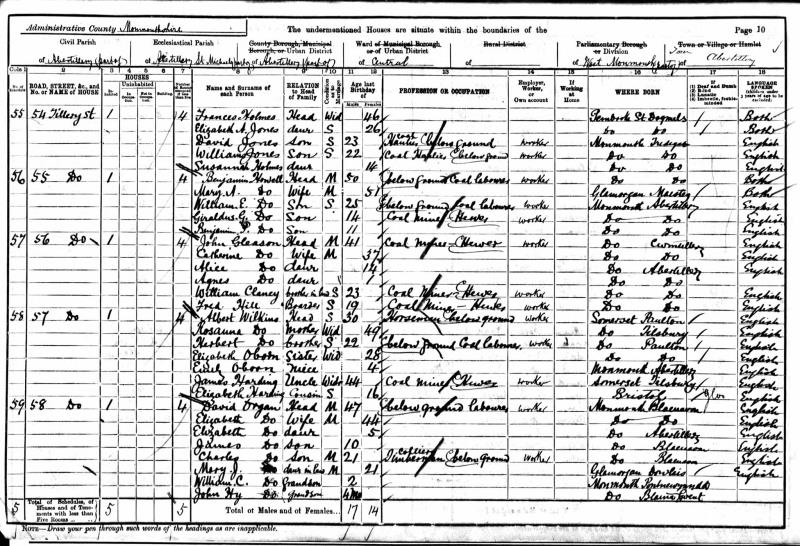 Administrative County Monmouthshire
The undermentioned Houses are situate within the boundaries of the
Page 10
Civil Parish
of Abertillery (part of)
Ecclesiastical Parish
of Abertillery St. Michael
County Borough, Municipal Borough, or Urban District
of Abertillery (part of)
Ward of Municipal Borough or of Urban District
of Central
Rural District
of
Parliamentary Borough or Division
of West Monmouth
Town or Village or Hamlet
of Abertillery
ROAD, STREET, &c., and No. or NAME of HOUSE
HOUSES
Uninhabited
Name and Surname of each Person
RELATION to Head of Family
Age last Birthday of
PROFESSION OR OCCUPATION
Employer, Worker, or Own account
If Working at Home
WHERE BORN
(1) Deaf and Dumb
(2) Blind
(3) Lunatic
(4) Imbecile, feeble-minded
LANGUAGE SPOKEN
55 54 Tillery St. 1 4 Frances Holmes Head Wid 46 Pembrook St Dogmels Both
Elizabeth A. Jones daur S 26 Do Do Both
David Jones Son S 23 Coal Haulier below ground worker Monmouth Tredegar English
William Jones Son S 22 Coal Haulier below ground worker Do Do English
Susannah Holmes daur 14 Do Do English
56 55 Do 1 4 Benjamin Howell Head M 50 below ground Coal labourer worker Do Do Both
Mary A. Do Wife M 51 Glamorgan Maesteg Both
William E. Do Son S 25 below ground Coal labourer worker Monmouth Abertillery English
Giraldus G. Do Son 14 Coal Miner Hewer worker Do Do English
Benjamin Do Son 11 Do Do English
57 56 Do 1 4 John Gleason Head M 41 Coal Miner Hewer worker Do Cwmtillery English
Catherine Do Wife M 37 Do Do English
Alice Do daur 14 Do Abertillery English
Agnes Do daur 7 Do Do
William Claney brother in law S 23 Coal Miner Hewer worker Do Do English
Fred Hill Boarder S 19 Coal Miner Hewer worker Do Do English
58 57 Do 1 4 Albert Wilkins Head S 30 Horseman below ground worker Somerset Paulton English
Rosanna Do Mother Wid 49 Do Tilsbury English
Herbert Do brother S 22 below ground Coal labourer worker Do Paulton English
Elizabeth Oborn Sister Wid 28 Do Do English
Emily Oborn Niece 4 Monmouth Abertillery English
James Harding Uncle Widr 44 Coal Miner Hewer worker Somerset Tilsbury English
Elizabeth Harding Cousin S 16 Bristol English
59 58 Do 1 4 David Organ Head M 47 below ground labourer worker Monmouth Blaenavon English
Elizabeth Do Wife M 44 Do Do English
Elizabeth Do daur 5 Do Abertillery English
James Do Son 10 Do Blaenavon English
Charles Do Son M 21 Collier Timberman below ground worker Do English
Mary J. Do daur in law M 21 Glamorgan Dowlais English
William C. Do Grandson 2 Monmouth
John Hy Do Grandson 4 Mo Do
5 Total of Schedules, of Houses and of Tenements with less than Five Rooms 5 5 Total of Males and of Females... 17 14
NOTE—Draw your pen through such words of the headings as are inapplicable.